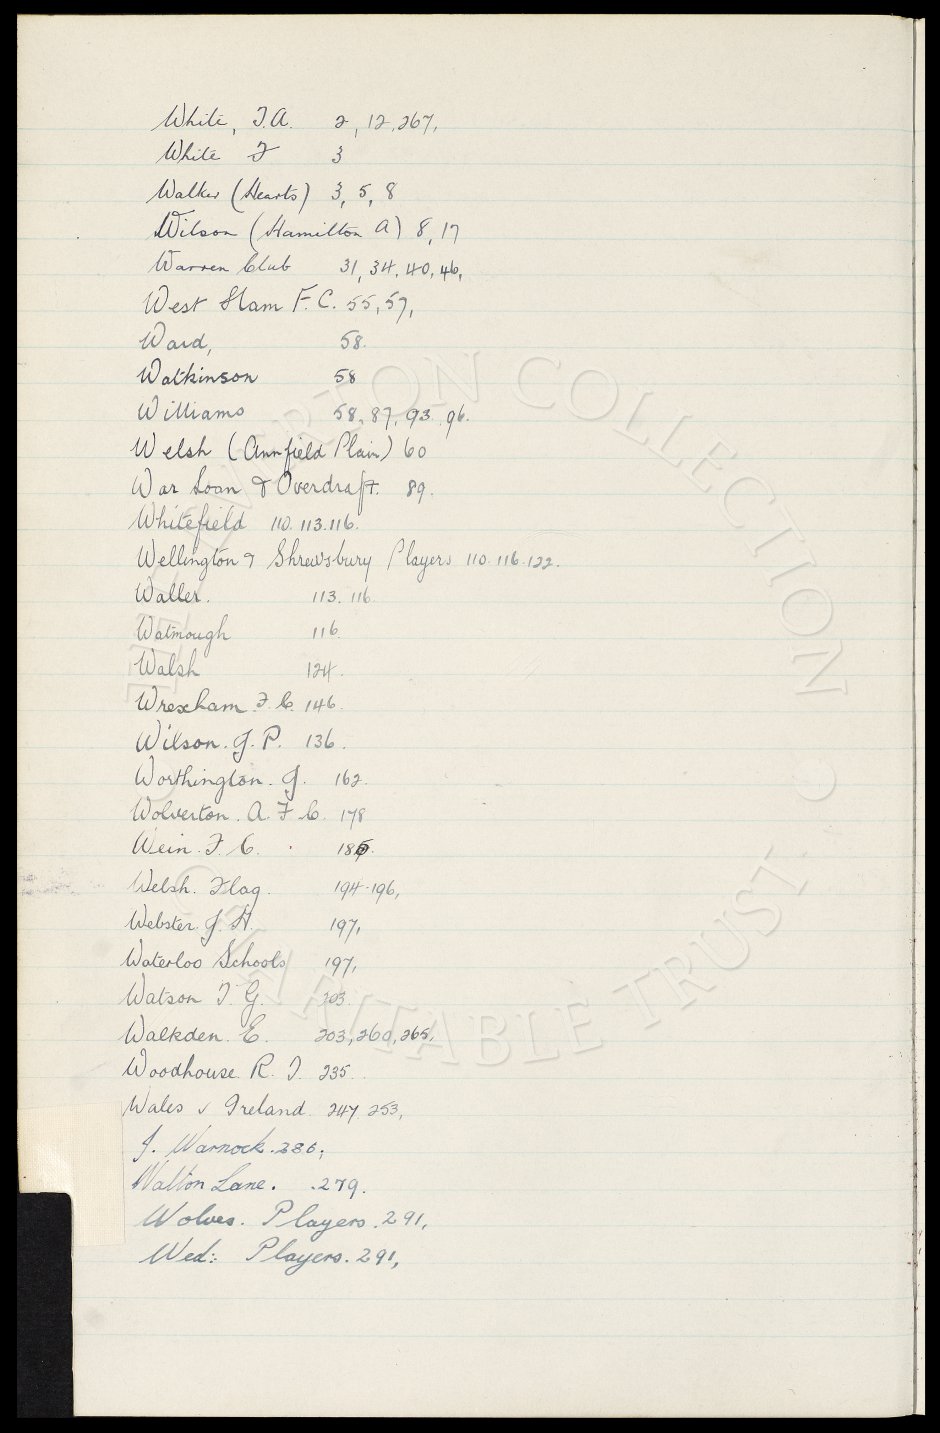 White, T.A. 2, 12, 267,
White T 3
Walker (Hearts) 3, 5, 8
Wilson (Hamilton A) 8, 17
Warren Club 31, 34, 40, 46,
West Ham F.C. 55, 57,
Ward, 58.
Watkinson 58
Williams 58, 87, 93. 96.
Welsh (Annfield Plain) 60
War Loan & Overdraft. 89.
Whitefield 110. 113. 116.
Wellington & Shrewsbury Players 110. 116. 122.
Waller. 113. 116.
Watmough 116.
Walsh 124.
Wrexham. F. C. 146.
Wilson. J. P. 136.
Worthington. J. 162.
Wolverton. A. F. C. 178
Wein. F. C.
Welsh. Flag. 194. 196,
Webster. J. H. 197,
Waterloo Schools 197,
Watson T. G. 203.
Walkden. E. 203, 260, 265,
Woodhouse R. T. 235.
Wales v Ireland. 247. 253,
J. Warnock. 286,
Walton Lane. 279.
Wolves. Players. 291,
Wed: Players. 291,
THE EVERTON COLLECTION
CHARITABLE TRUST